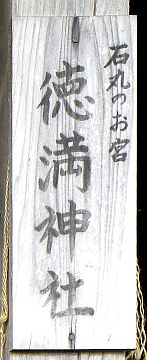 石札のお宮
徳満神社